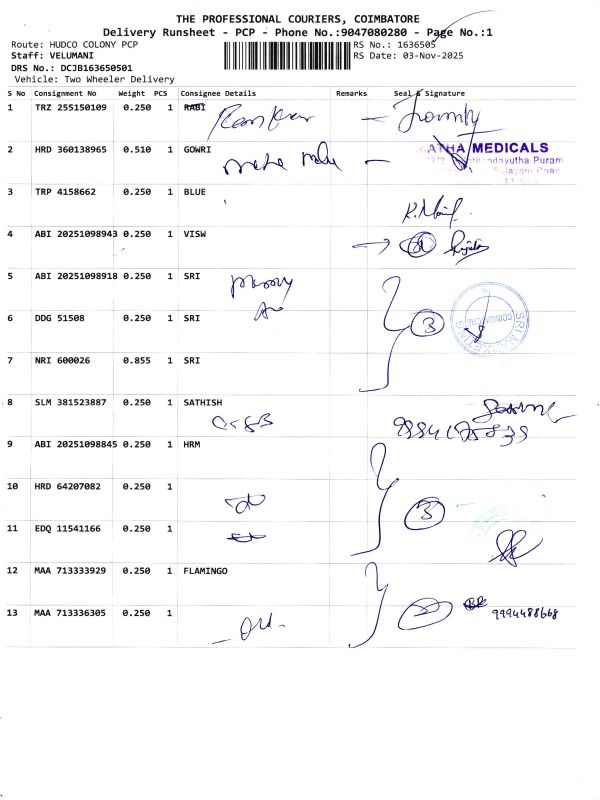 THE PROFESSIONAL COURIERS, COIMBATORE
Delivery Runsheet - PCP - Phone No.:9047080280 - Page No.:1
Route: HUDCO COLONY PCP RS No.: 1636505
Staff: VELUMANI RS Date: 03-Nov-2025
DRS No.: DCJB163650501
Vehicle: Two Wheeler Delivery
S No Consignment No Weight PCS Consignee Details Remarks Seal & Signature
1 TRZ 255150109 0.250 1 RABI
2 HRD 360138965 0.510 1 GOWRI
MEDICALS
Puram
3 TRP 4158662 0.250 1 BLUE
4 ABI 20251098943 0.250 1 VISW
5 ABI 20251098918 0.250 1 SRI
6 DDG 51508 0.250 1 SRI
3
SRI
COIMBATORE
7 NRI 600026 0.855 1 SRI
8 SLM 381523887 0.250 1 SATHISH
9 ABI 20251098845 0.250 1 HRM
10 HRD 64207082 0.250 1
3
11 EDQ 11541166 0.250 1
12 MAA 713333929 0.250 1 FLAMINGO
13 MAA 713336305 0.250 1
2
9994488668